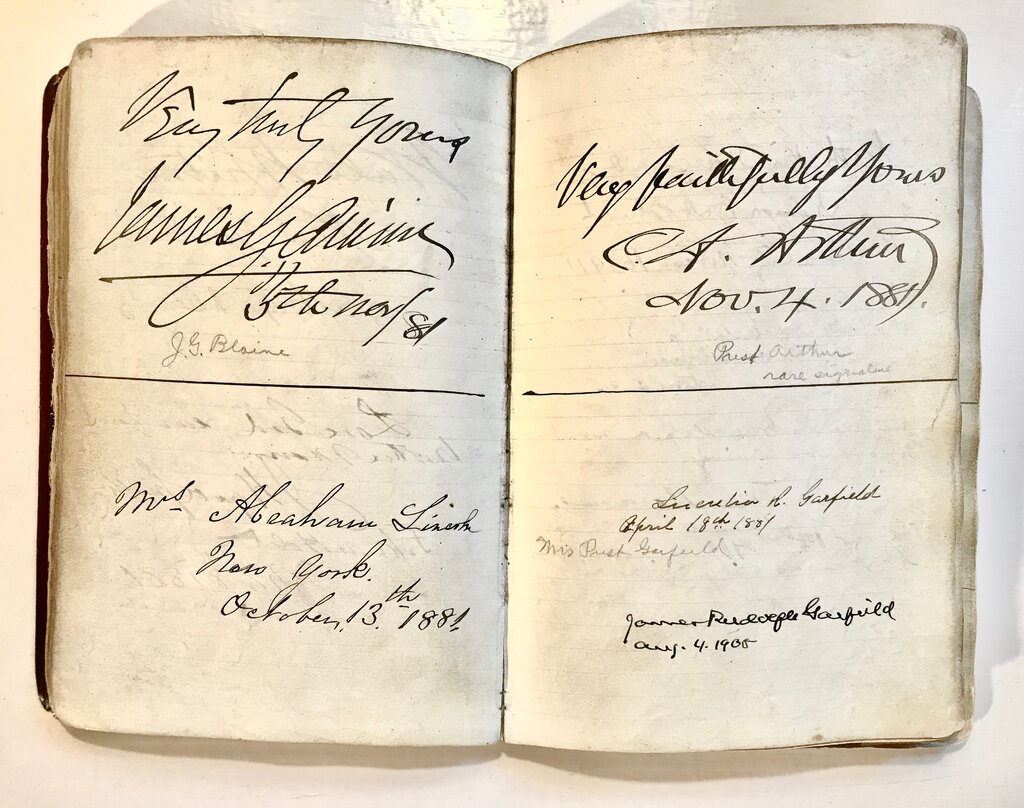 Very truly yours
James G. Blaine
5th Nov/81
J.G. Blaine
Mrs Abraham Lincoln
New York.
October, 13th 1881.
Very faithfully Yours
C. A. Arthur
Nov. 4. 1881.
Prest Arthur
rare signature
Lucretia R. Garfield
April 18th 1881
Mrs Prest Garfield
James Rudolph Garfield
Aug. 4. 1908